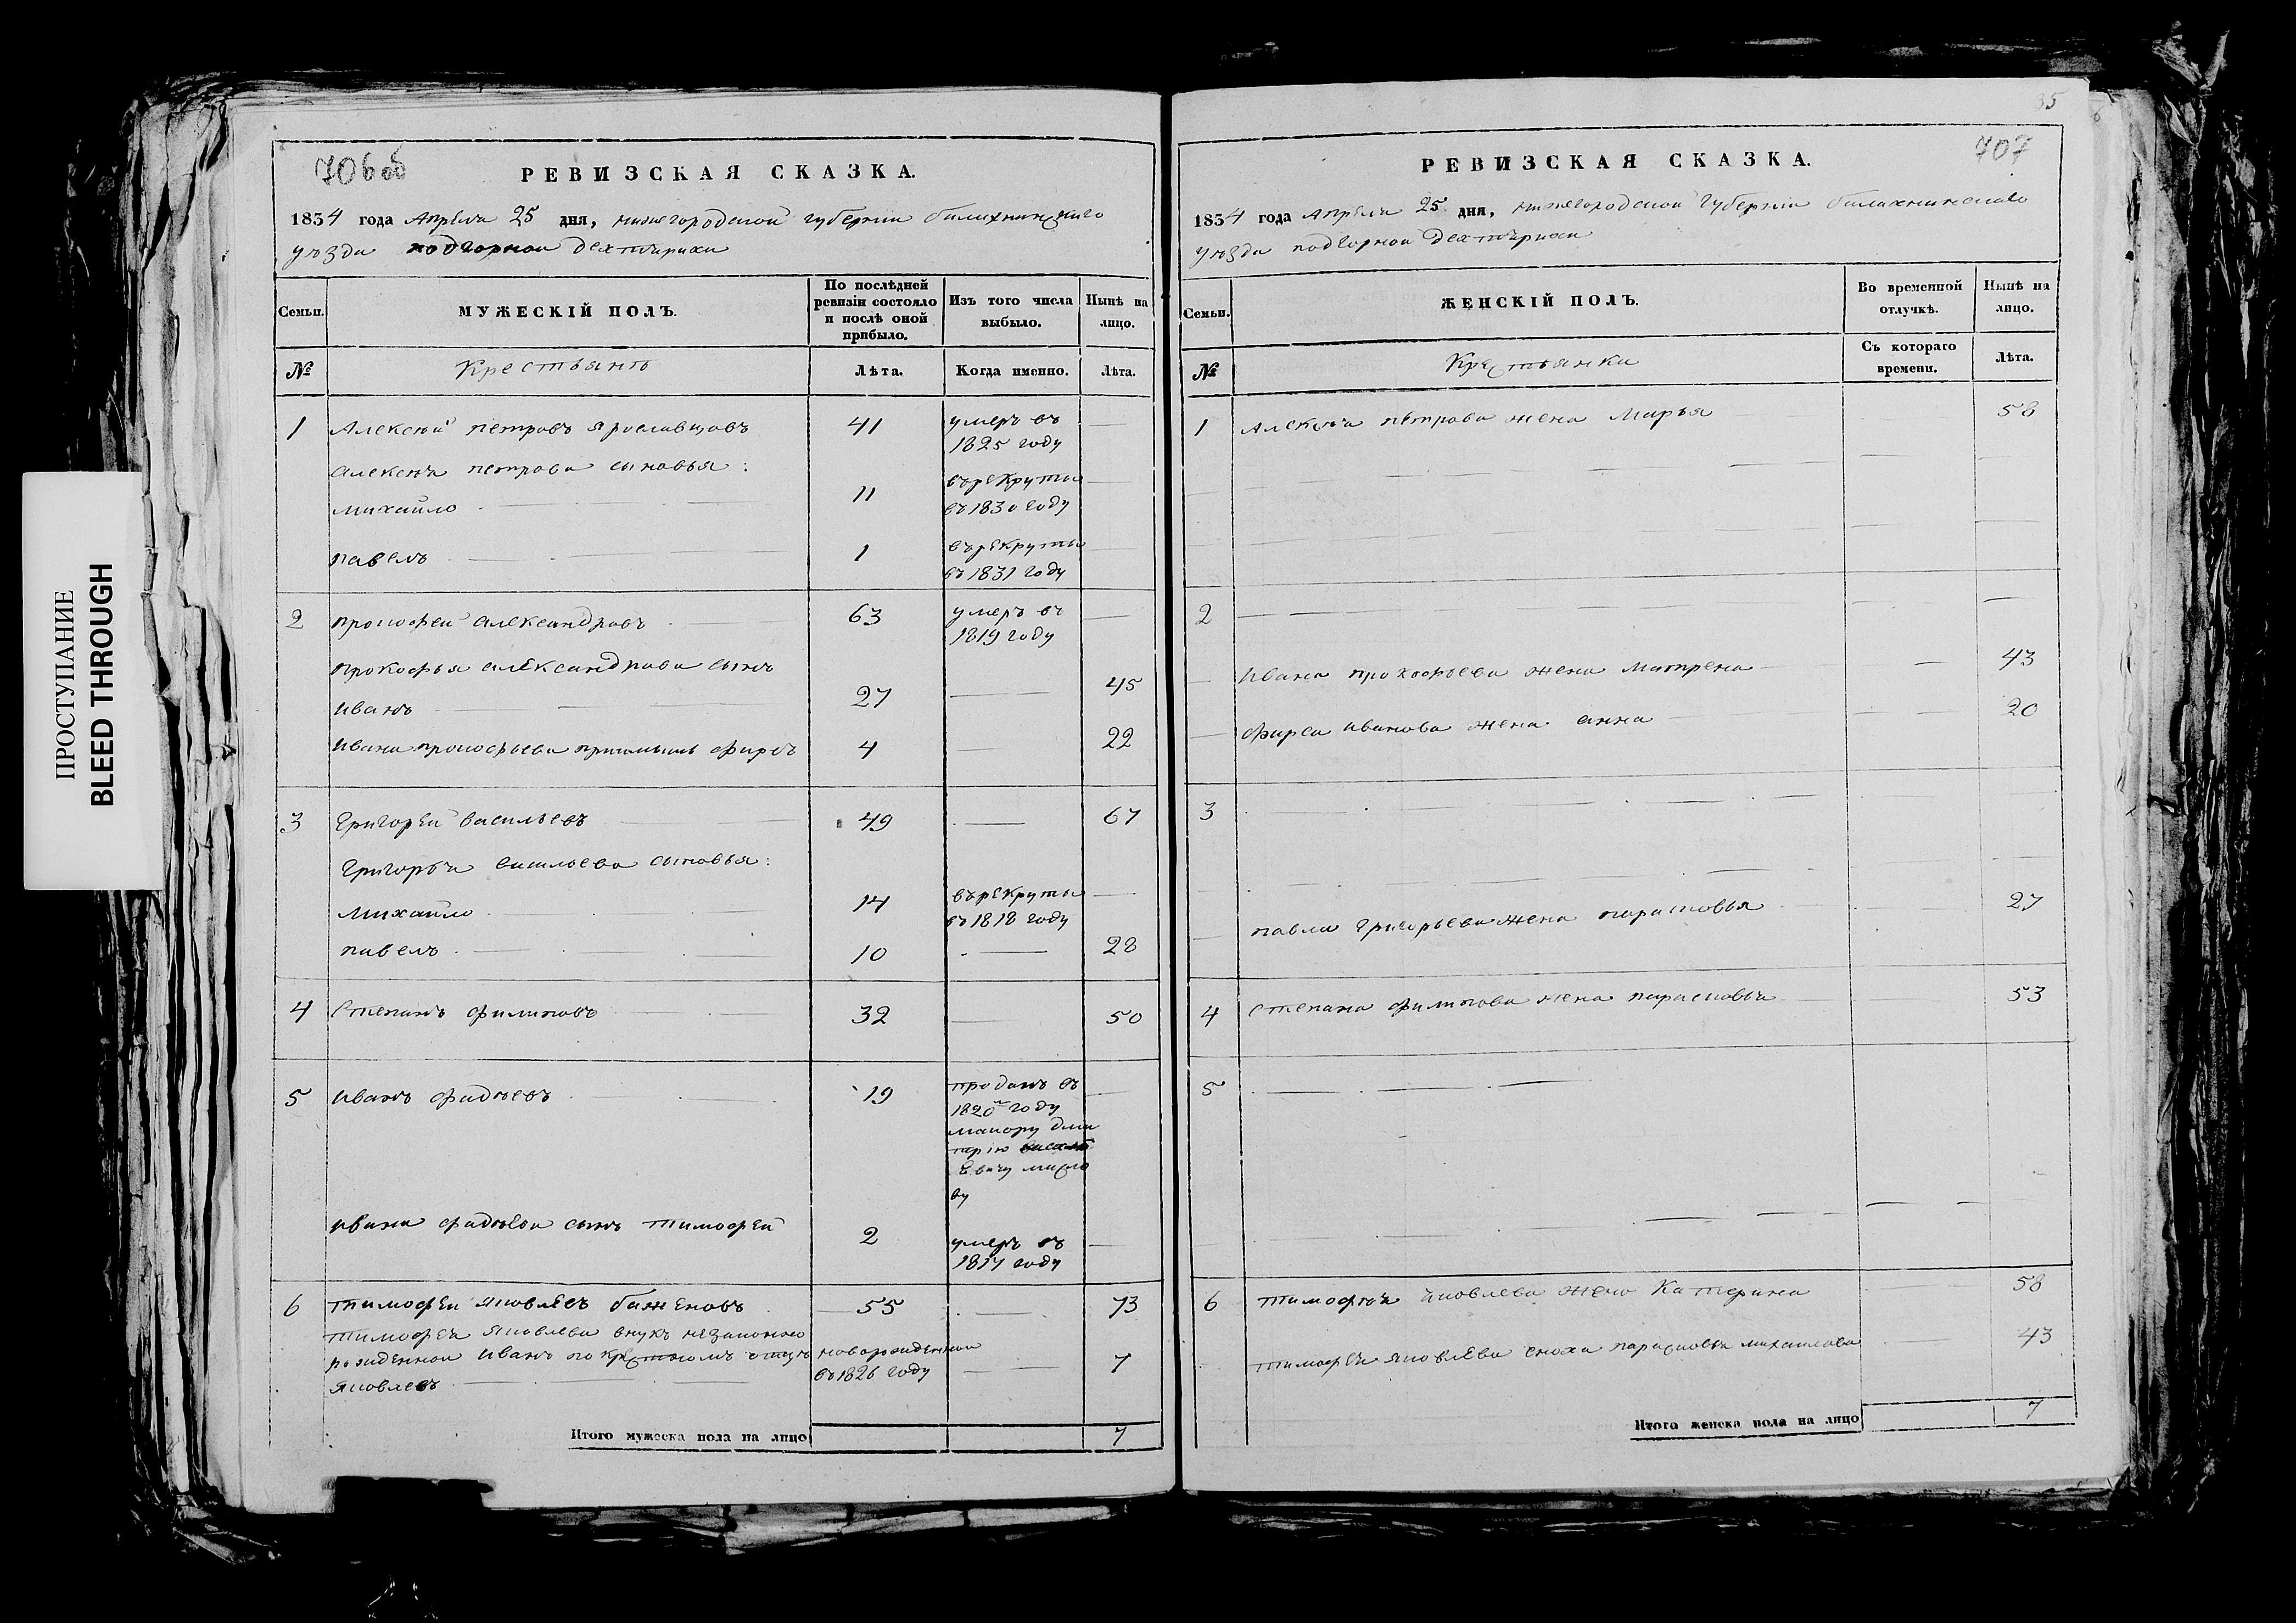 ПРОСТУПАНИЕ
BLEED THROUGH
706 об
РЕВИЗСКАЯ СКАЗКА.
1834 года Апреля 25 дня, нижегородской губернии балахнинскаго
уѣзда подгорной дехтярихи
Семьи.
МУЖЕСКІЙ ПОЛЪ.
По послѣдней ревизіи состояло и послѣ оной прибыло.
Изъ того числа выбыло.
Нынѣ на лицо.
№
Крестьянъ
Лѣта.
Когда именно.
Лѣта.
1 Алексей петровъ ярославцовъ 41 умеръ въ
1825 году
алексея петрова сыновья:
михайло 11 въ рекруты
въ 1830 году
павелъ 1 въ рекруты
въ 1831 году
2 прокофей александровъ 63 умеръ въ
1819 году
прокофья александрова сынъ
иванъ 27 45
ивана прокофьева приимышъ фирсъ 4 22
3 Григорей васильевъ 49 67
Григорья васильева сыновья:
михайло 14 въ рекруты
въ 1818 году
павелъ 10 28
4 Степанъ филиповъ 32 50
5 иванъ фадѣевъ 19 проданъ въ
1820 году
маиору дми
трію
евичу
ву
ивана фадѣева сынъ тимофей 2 умеръ въ
1817 году
6 тимофеи яковлевъ баженовъ 55 73
тимофея яковлева внукъ незаконно
рожденной иванъ по крестномъ отцѣ новорожденной
яковлевъ въ 1826 году 7
Итого мужеска пола на лицо 7
35
707
РЕВИЗСКАЯ СКАЗКА.
1834 года апреля 25 дня, нижегородской губерніи балахнинскаго
уѣзда подгорной дехтярихи
Семьи.
ЖЕНСКІЙ ПОЛЪ.
Во временной отлучкѣ.
Нынѣ на лицо.
№
Крестьянки
Съ котораго времени.
Лѣта.
1 Алексея петрова жена Марья 58
2
ивана прокофьева жена матрена 43
фирса иванова жена анна 20
3
павла григорьева жена парасковья 27
4 степана филипова жена парасковья 53
5
6 тимофея яковлева жена Катерина 58
тимофея яковлева сноха парасковья михаилова 43
Итого женска пола на лицо 7